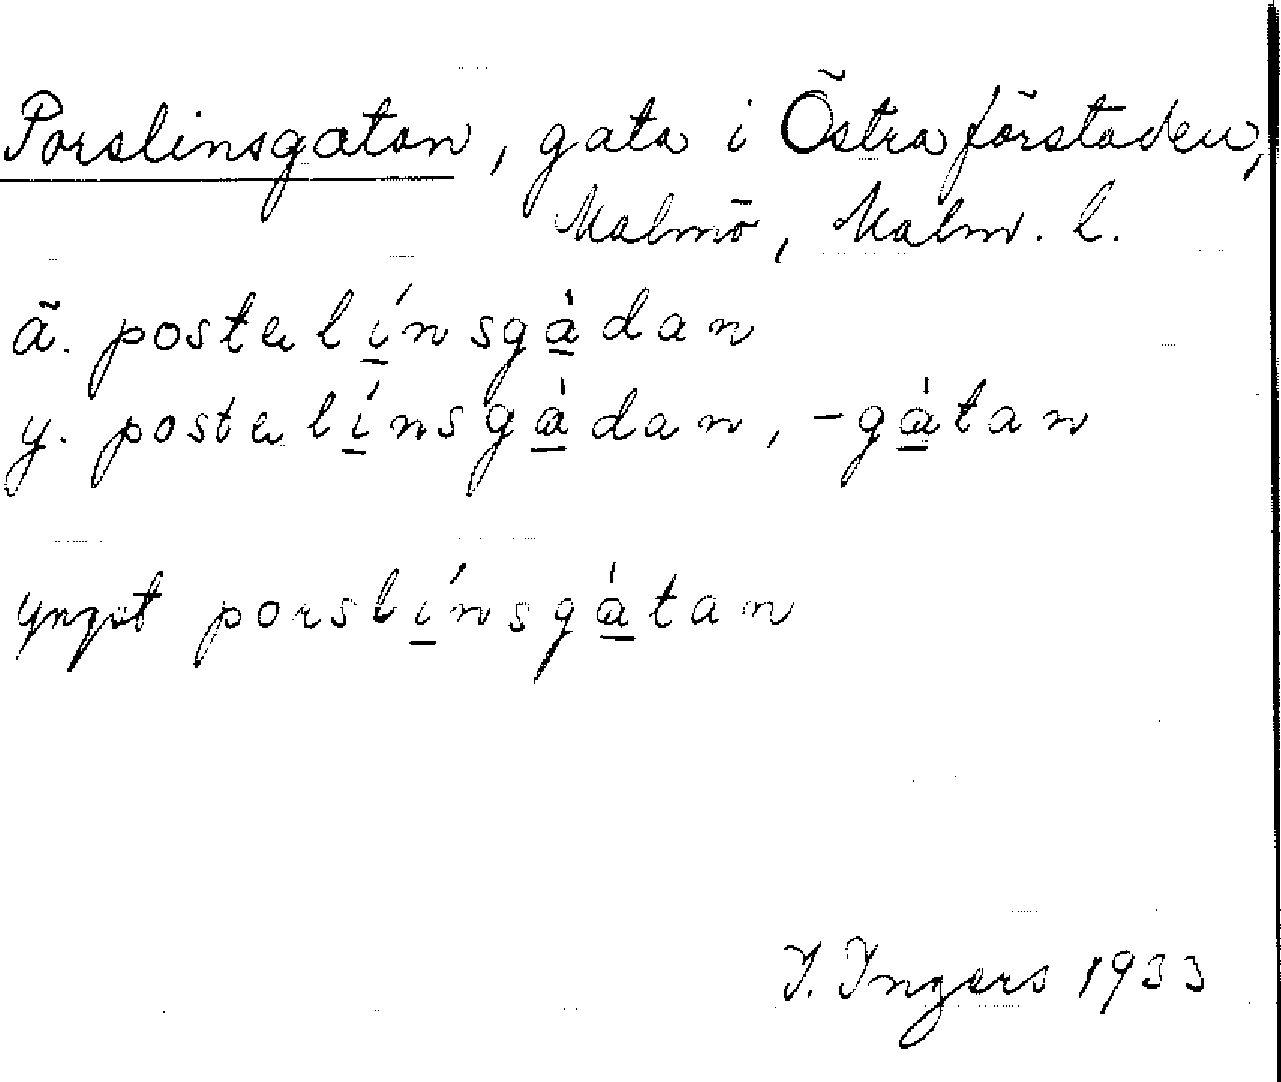 Porslinsgatan, gata i Östra förstaden,
Malmö, Malm. l.
ä. postɐlínsgàdan
y. postɐlínsgàdan, -gàtan
yngst porslínsgàtan
I. Ingers 1933